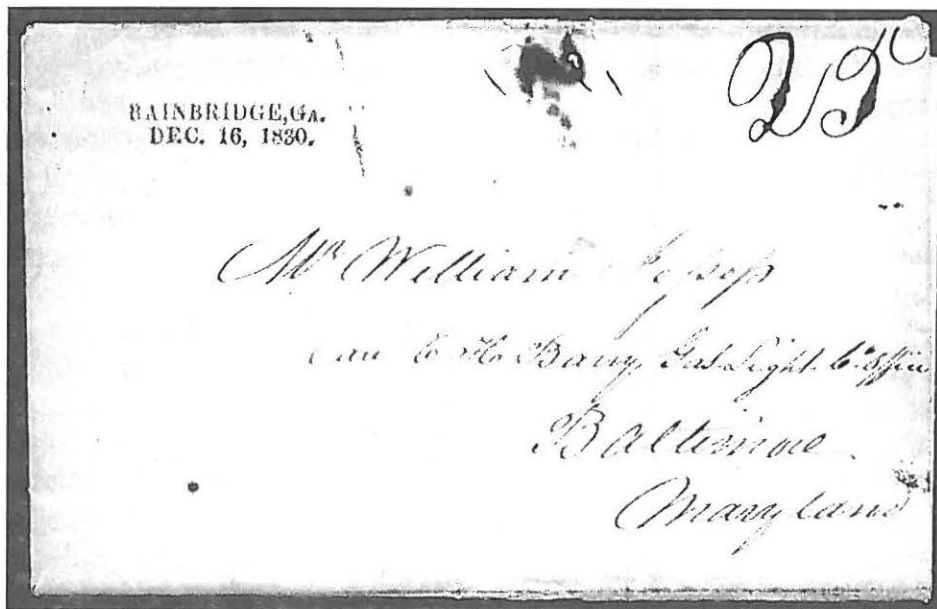 BAINBRIDGE, GA.
DEC. 16, 1830.
25
Mr William Jessop
Care E H Barry Gas Light Co Office
Baltimore
Maryland